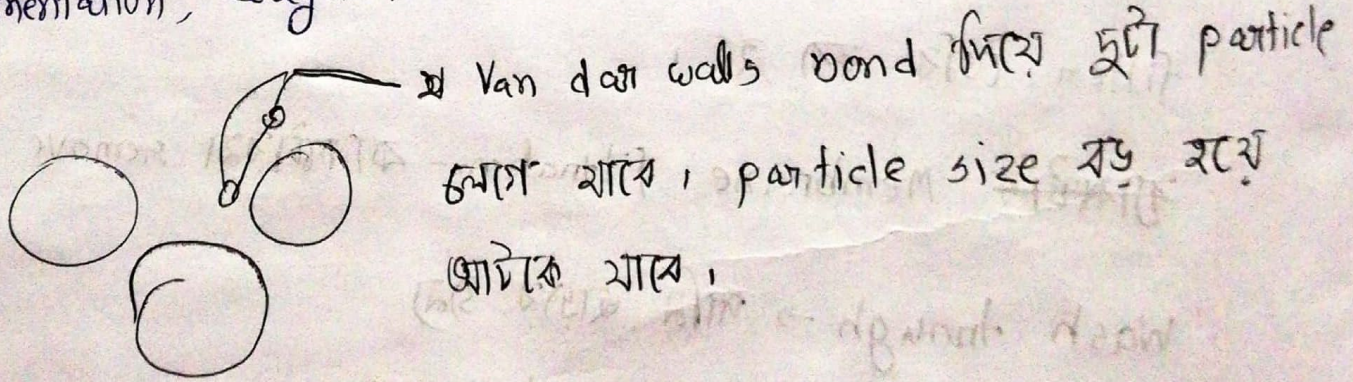 Van dar walls bond দিয়ে দুটো particle
লেগে যাবে। particle size বড় হয়ে
আটকে যাবে।